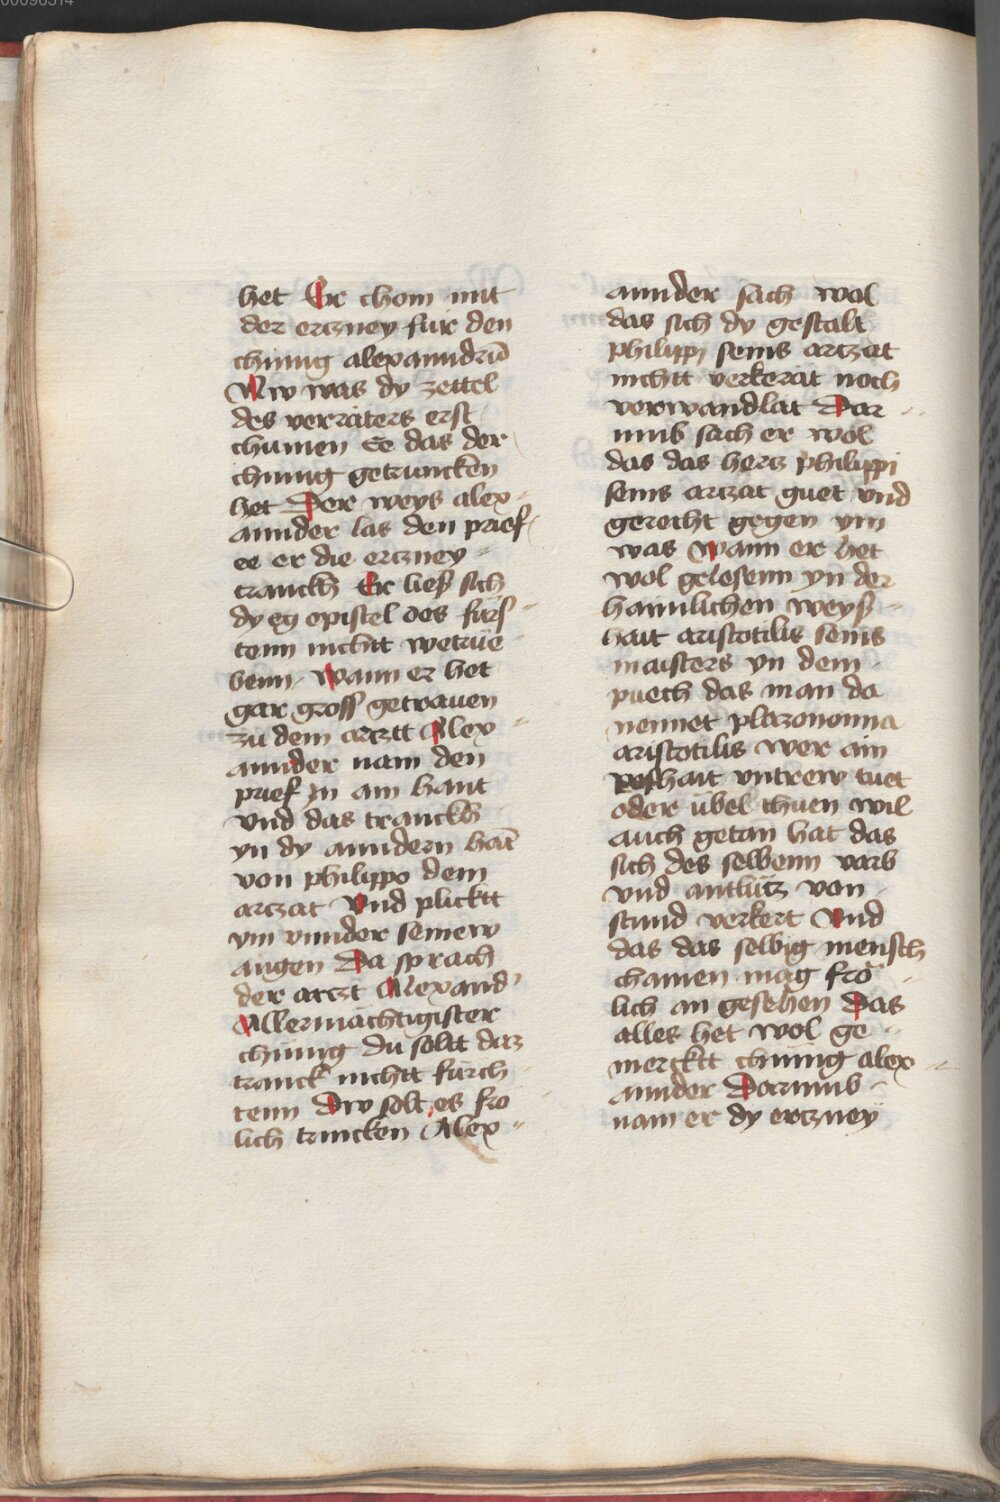 het Er chom mit
der erczney fur den
chinig alexanndrũ
Nw was dy zettel
des verräters erst
chumen Ee das der
chinig getruncken
het Der weys alex
annder las den prief
ee er die erczney
tranckh Er lies sich
dy eg epistel des fürs
tenn nichtt wetrüe
benn wann er het
gar gross getrawen
zu dem arcztt Alex
annder nam den
prief in ain hant
vnd das tranckh
yn dy anndern hãt
von philippo dem
arczat Vnd plicktt
ym vnnder seinew
augen Da sprach
der arczt Alexand'
Allermächtigister
chinig du soltt daz
tranck nichtt fürch
tenn Dw solt es frö
lich trincken Alex
annder sach wol
das sich dy gestalt
philippi seins arczat
nichtt verkerät noch
verwandlät Dar
umb sach er wol
das das hertz philippi
seins arczat guet vnd
gerecht gegen ym
was wann er het
wol gelesenn yn der
haimlichen weyß
hait aristotilis seins
maisters yn dem
puech das man da
nennet phizonomia
aristotilis wer ain
poshait vntrew tuet
oder übel thuen wil
auch getan hat das
sich des selbenn varb
vnd antlütz von
stund verkert Vnd
das das selbig mensch
chainen mag frö
lich an gesehen Das
alles het wol ge
mercktt chinig alex
annder Darumb
nam er dy erczney